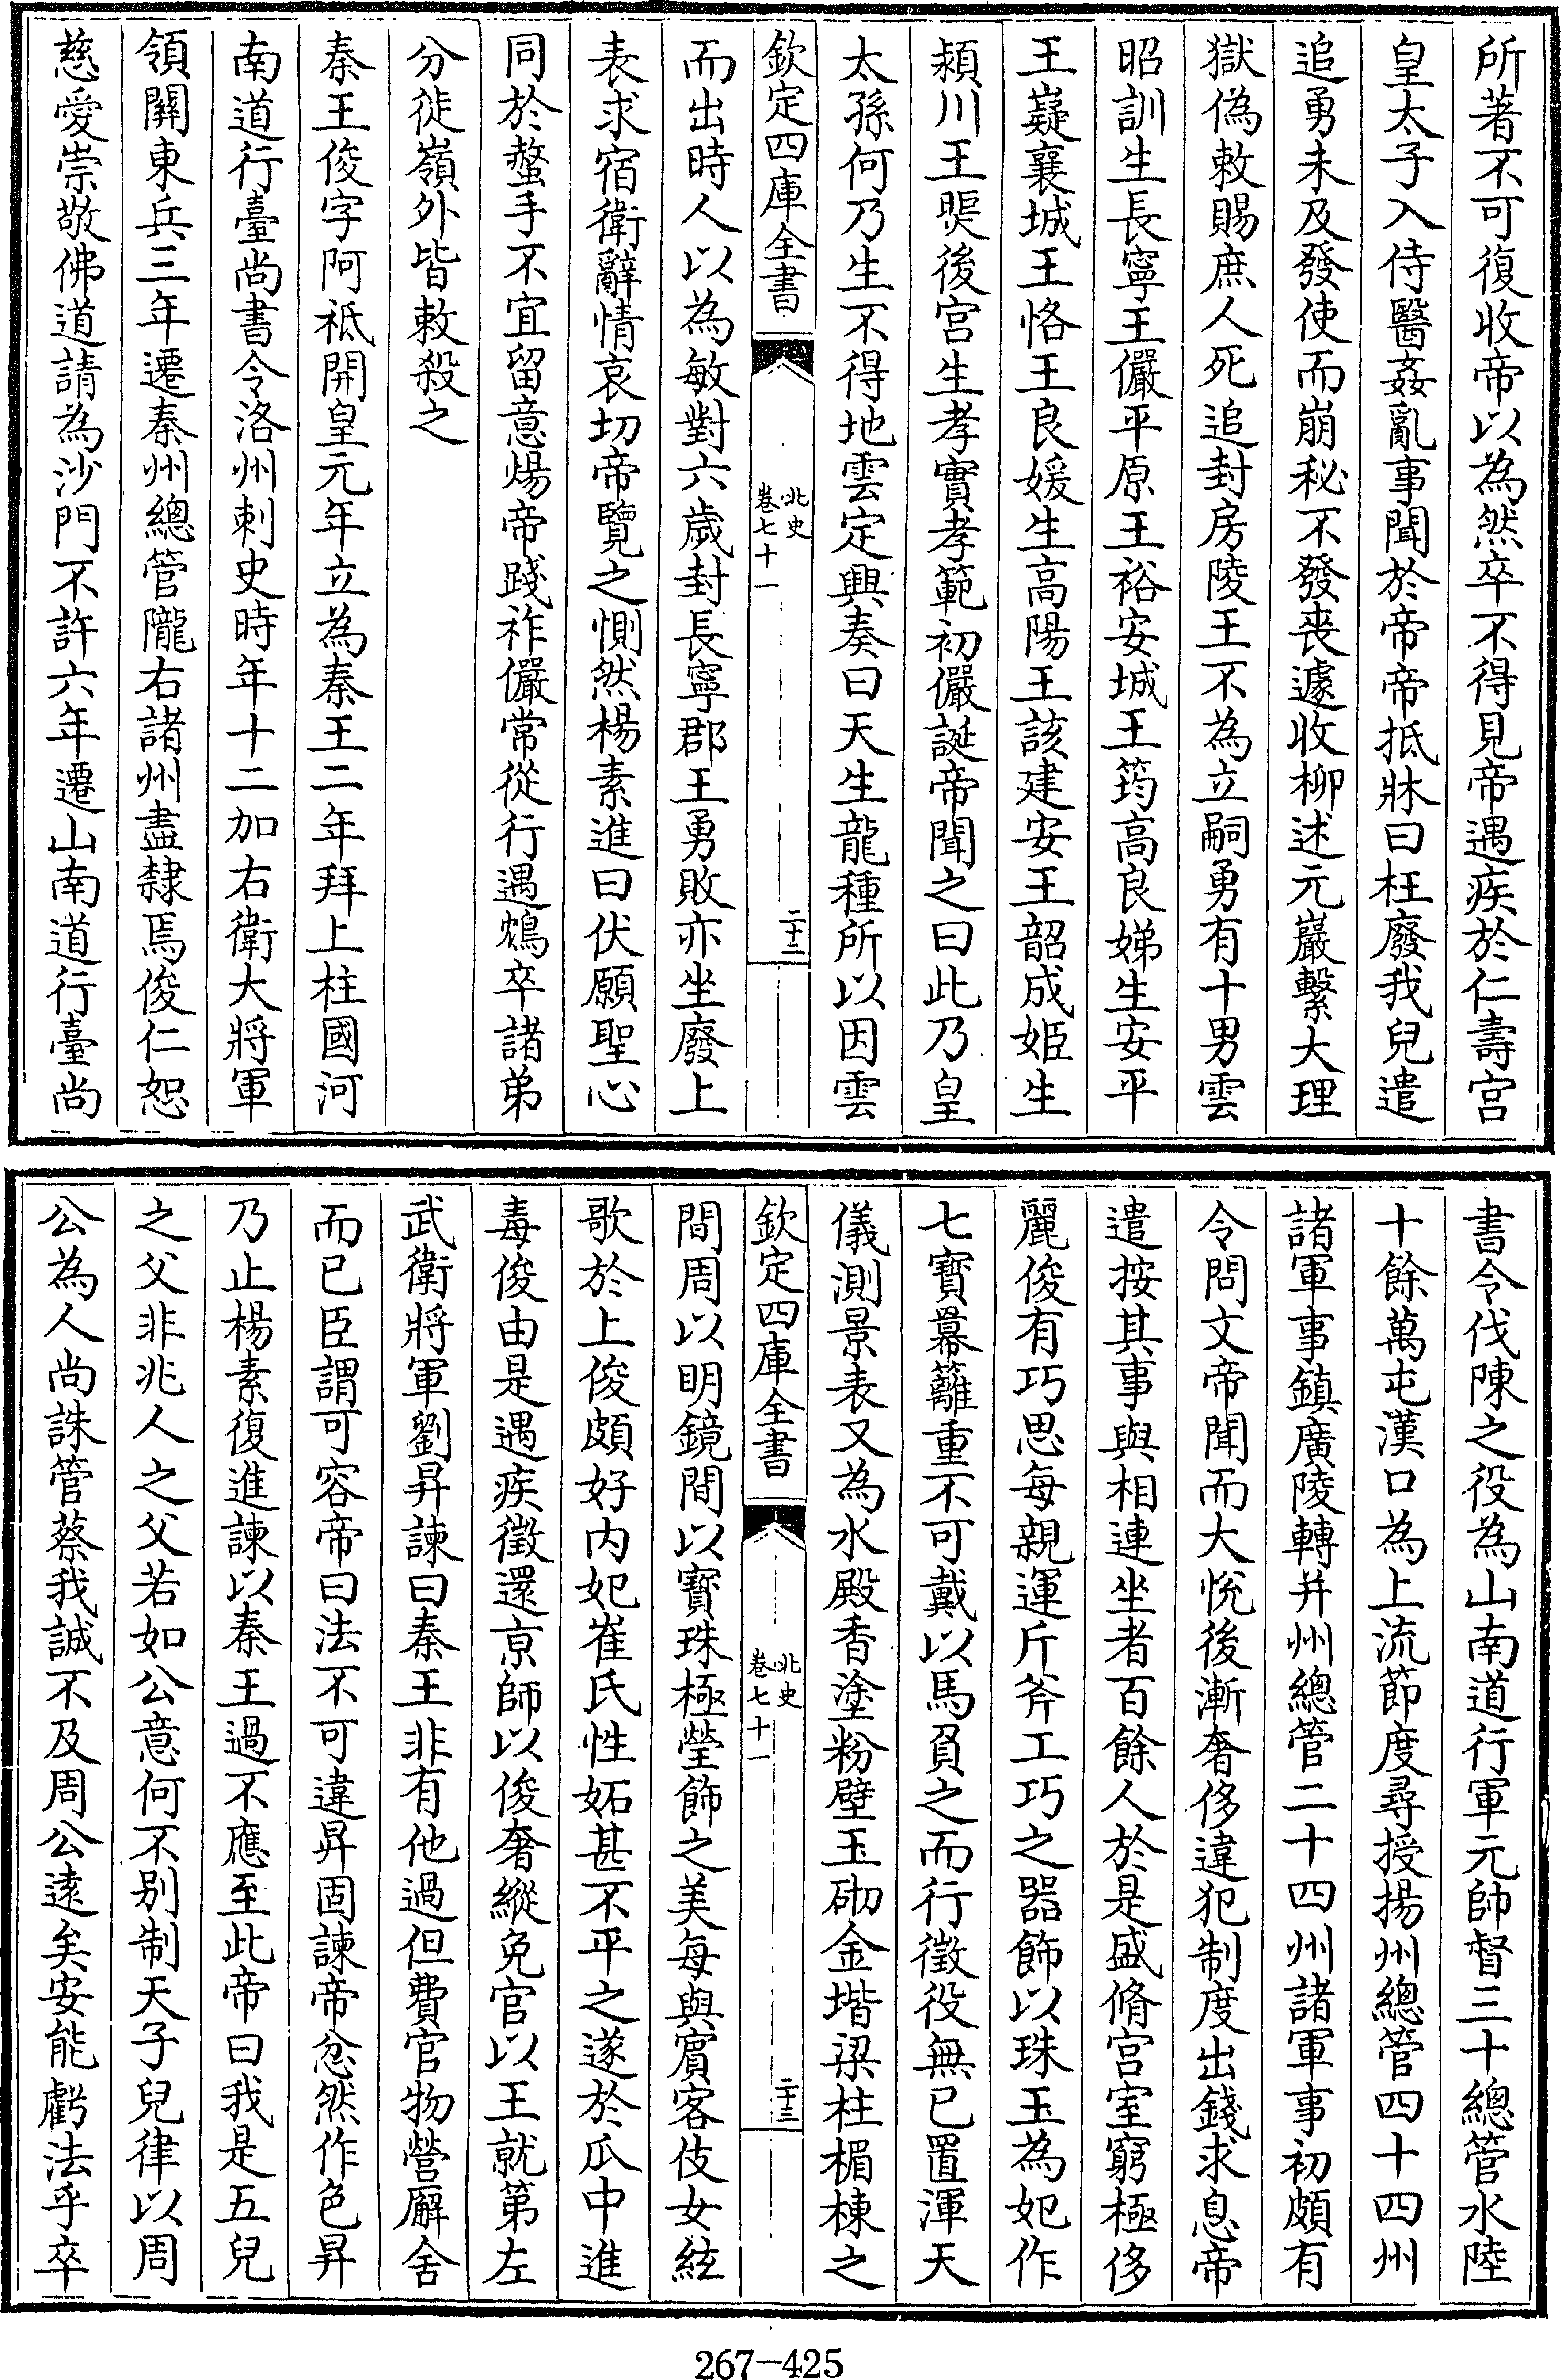 所著不可復收帝以為然卒不得見帝遇疾於仁壽宮
皇太子入侍醫姦亂事聞於帝帝抵牀曰枉廢我兒遣
追勇未及發使而崩秘不發喪遽收柳述元巖繫大理
獄偽敕賜庶人死追封房陵王不為立嗣勇有十男雲
昭訓生長寧王儼平原王裕安城王筠高良娣生安平
王嶷襄城王恪王良媛生高陽王該建安王韶成姬生
潁川王煚後宮生孝實孝範初儼誕帝聞之曰此乃皇
太孫何乃生不得地雲定興奏曰天生龍種所以因雲
欽定四庫全書
北史
卷七十一
二十二
而出時人以為敏對六歲封長寧郡王勇敗亦坐廢上
表求宿衛辭情哀切帝覽之惻然楊素進曰伏願聖心
同於螫手不宜留意煬帝踐祚儼常從行遇鴆卒諸弟
分徙嶺外皆敕殺之
秦王俊字阿祇開皇元年立為秦王二年拜上柱國河
南道行臺尚書令洛州刺史時年十二加右衛大將軍
領關東兵三年遷秦州總管隴右諸州盡隸焉俊仁恕
慈愛崇敬佛道請為沙門不許六年遷山南道行臺尚
書令伐陳之役為山南道行軍元帥督三十總管水陸
十餘萬屯漢口為上流節度尋授揚州總管四十四州
諸軍事鎮廣陵轉并州總管二十四州諸軍事初頗有
令問文帝聞而大悅後漸奢侈違犯制度出錢求息帝
遣按其事與相連坐者百餘人於是盛脩宮室窮極侈
麗俊有巧思每親運斤斧工巧之器飾以珠玉為妃作
七寶冪籬重不可戴以馬負之而行徵役無已置渾天
儀測景表又為水殿香塗粉壁玉砌金堦梁柱楣棟之
欽定四庫全書
北史
卷七十一
二十三
間周以明鏡間以寶珠極瑩飾之美每與賓客伎女絃
歌於上俊頗好內妃崔氏性妬甚不平之遂於瓜中進
毒俊由是遇疾徵還京師以俊奢縱免官以王就第左
武衛將軍劉昇諫曰秦王非有他過但費官物營廨舍
而已臣謂可容帝曰法不可違昇固諫帝忿然作色昇
乃止楊素復進諫以秦王過不應至此帝曰我是五兒
之父非兆人之父若如公意何不別制天子兒律以周
公為人尚誅管蔡我誠不及周公遠矣安能虧法乎卒
267-425